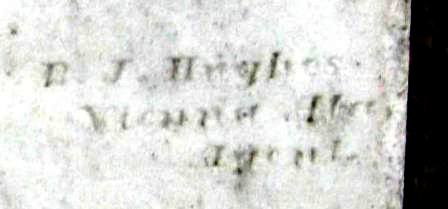 B. J. Hughes
Vienna
Agent.